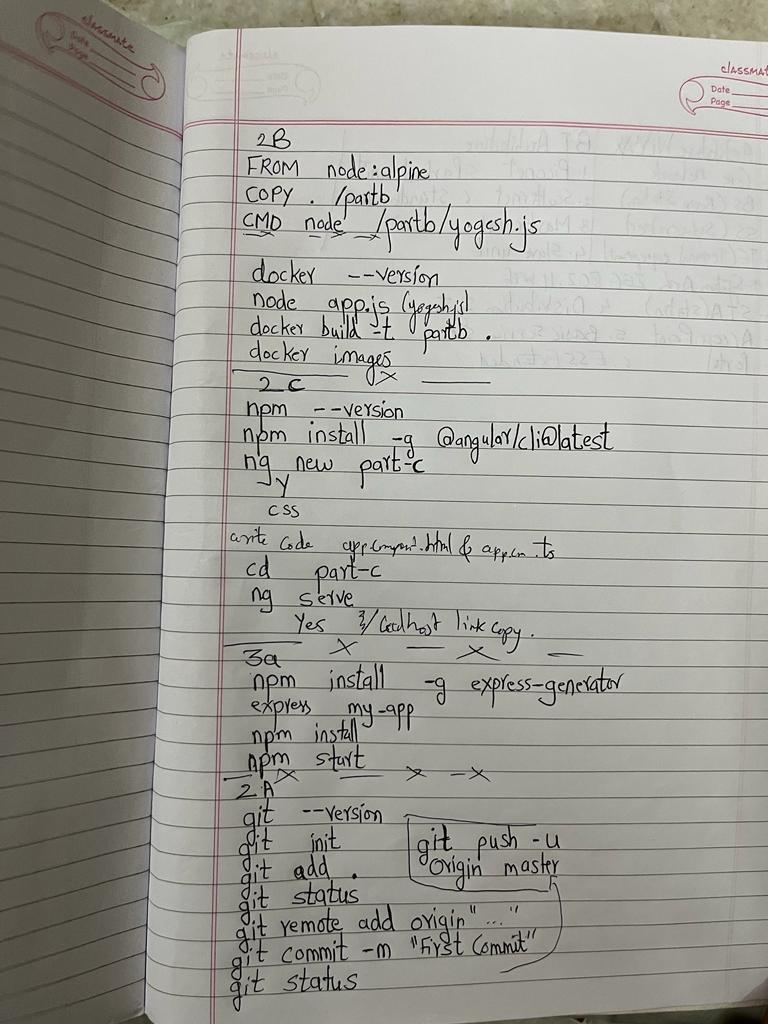 classmate
Date
Page
classmate
Date
Page
2B
FROM node:alpine
COPY . /partb
CMD node /partb/yogesh.js
docker --version
node app.js (yogesh.js)
docker build -t partb .
docker images
2C
npm --version
npm install -g @angular/cli@latest
ng new part-c
y
css
write code app.component.html & app.cm.ts
cd part-c
ng serve
Yes localhost link copy.
3a
npm install -g express-generator
express my-app
npm install
npm start
2A
git --version
git init
git add .
git status
git remote add origin "..."
git commit -m "First Commit"
git status
git push -u
origin master